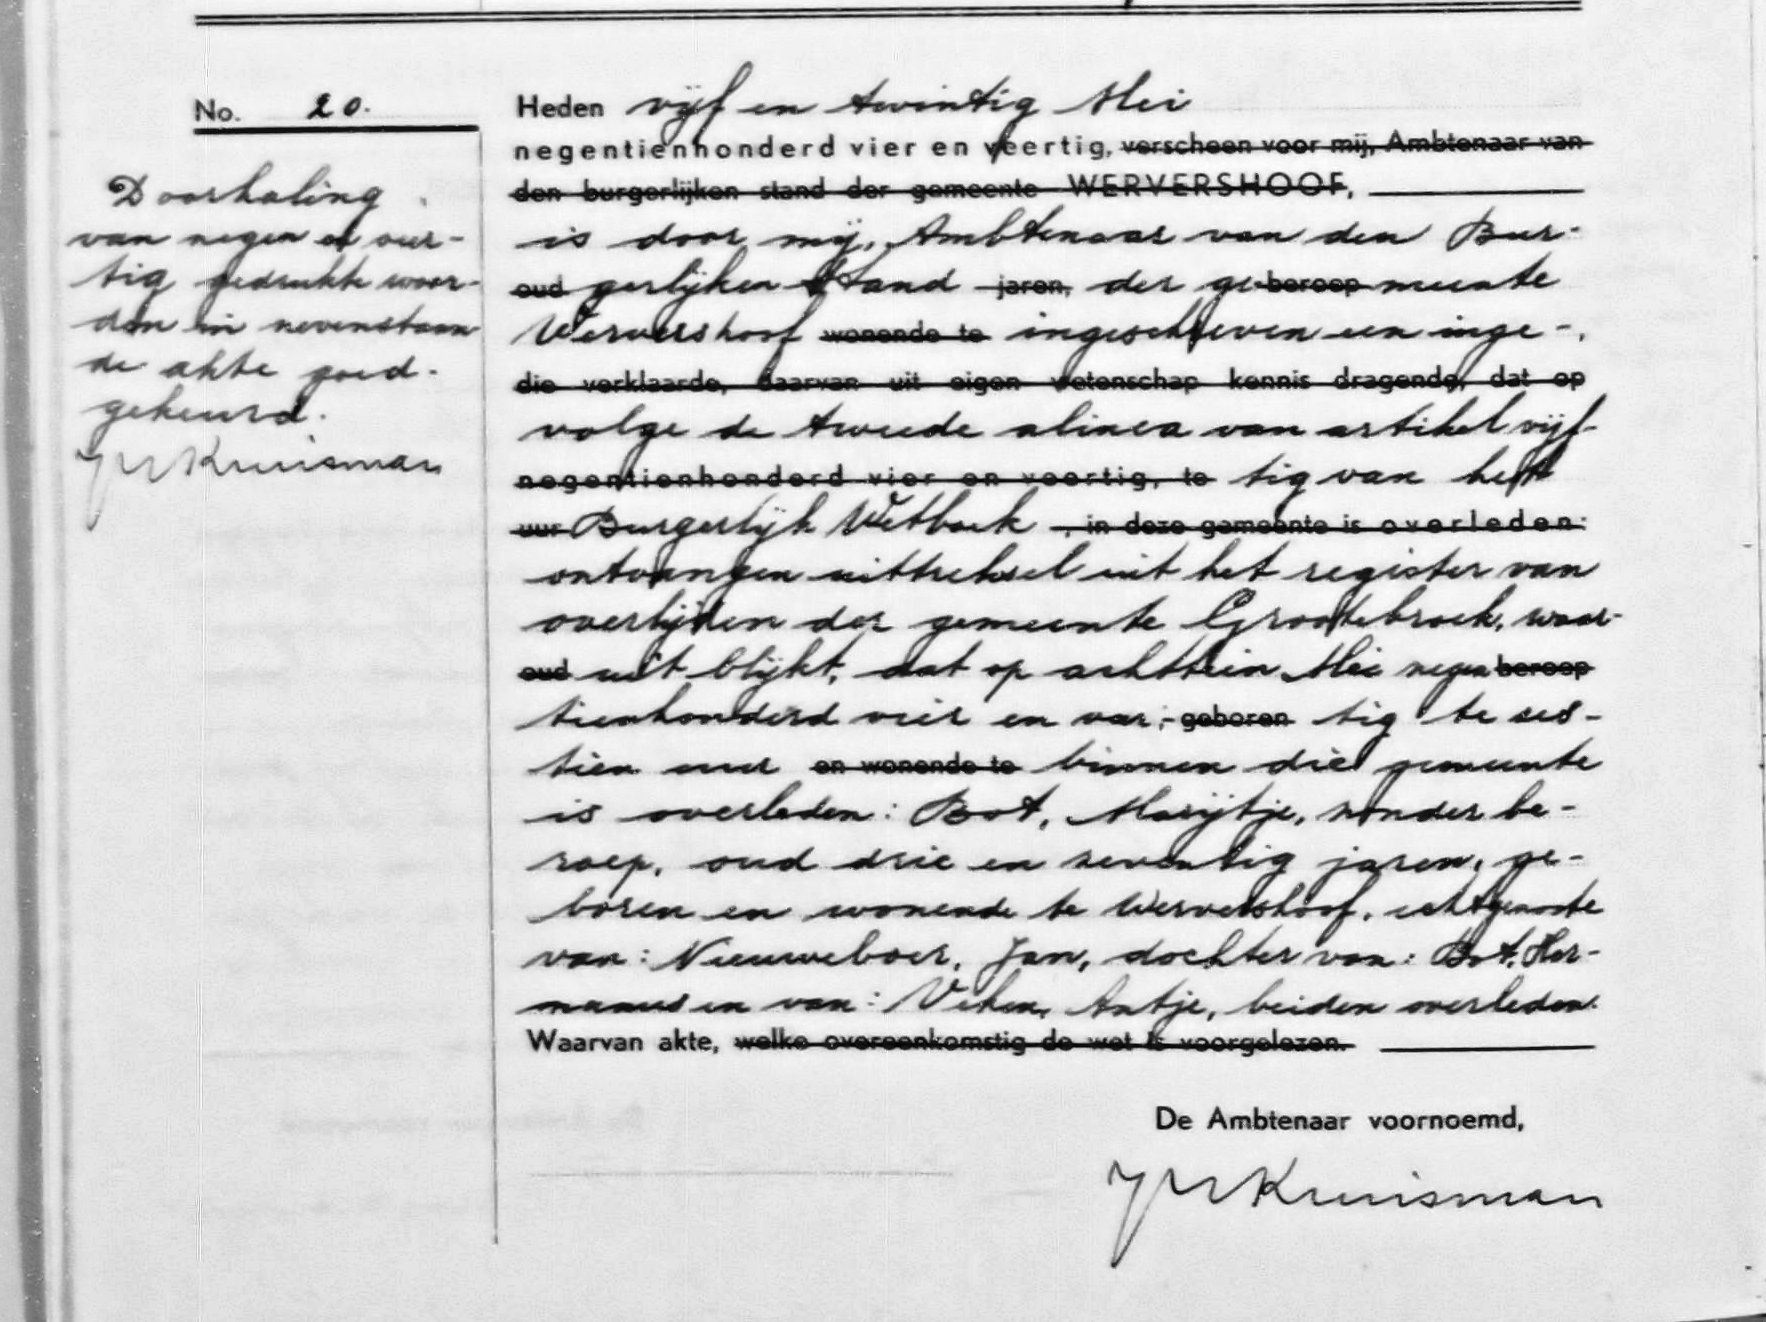 No. 20.
Doorhaling
van negen en veer-
tig gedrukte woor-
den in nevenstaan-
de akte goed-
gekeurd.
Kruisman
Heden vijf en twintig Mei
negentienhonderd vier en veertig, verscheen voor mij, Ambtenaar van
den burgerlijken stand der gemeente WERVERSHOOF,
is door mij, Ambtenaar van den Bur-
oud gerlijken Stand jaren, der ge beroep meente
Wervershoof wonende te ingeschreven een inge-
die verklaarde, daarvan uit eigen wetenschap kennis dragende, dat op
volge de tweede alinea van artikel vijf-
negentienhonderd vier en veertig, te tig van het
uur Burgerlijk Wetboek , in deze gemeente is overleden:
ontvangen uittreksel uit het register van
overlijden der gemeente Grootebroek, waar-
oud uit blijkt, dat op achttien Mei negen beroep
tienhonderd vier en veer- geboren tig te zes-
tien uur en wonende te binnen die gemeente
is overleden: Bot, Marijtje, zonder be-
roep, oud drie en zeventig jaren, ge-
boren en wonende te Wervershoof, echtgenoote
van: Nieuweboer, Jan, dochter van: Bot, Her-
manus en van: Veken, Antje, beiden overleden.
Waarvan akte, welke overeenkomstig de wet is voorgelezen.
De Ambtenaar voornoemd,
Kruisman